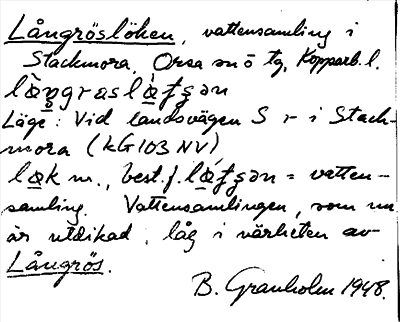 Långröslöken, vattensamling i
Stackmora, Orsa sn ö tg, Kopparb. l.
Läge: Vid landsvägen S r i Stack-
mora (kG 103 NV)
m., best. f. = vatten-
samling. Vattensamlingen, som nu
är utdikad, låg i närheten av
Långrös.
B. Granholm 1948.